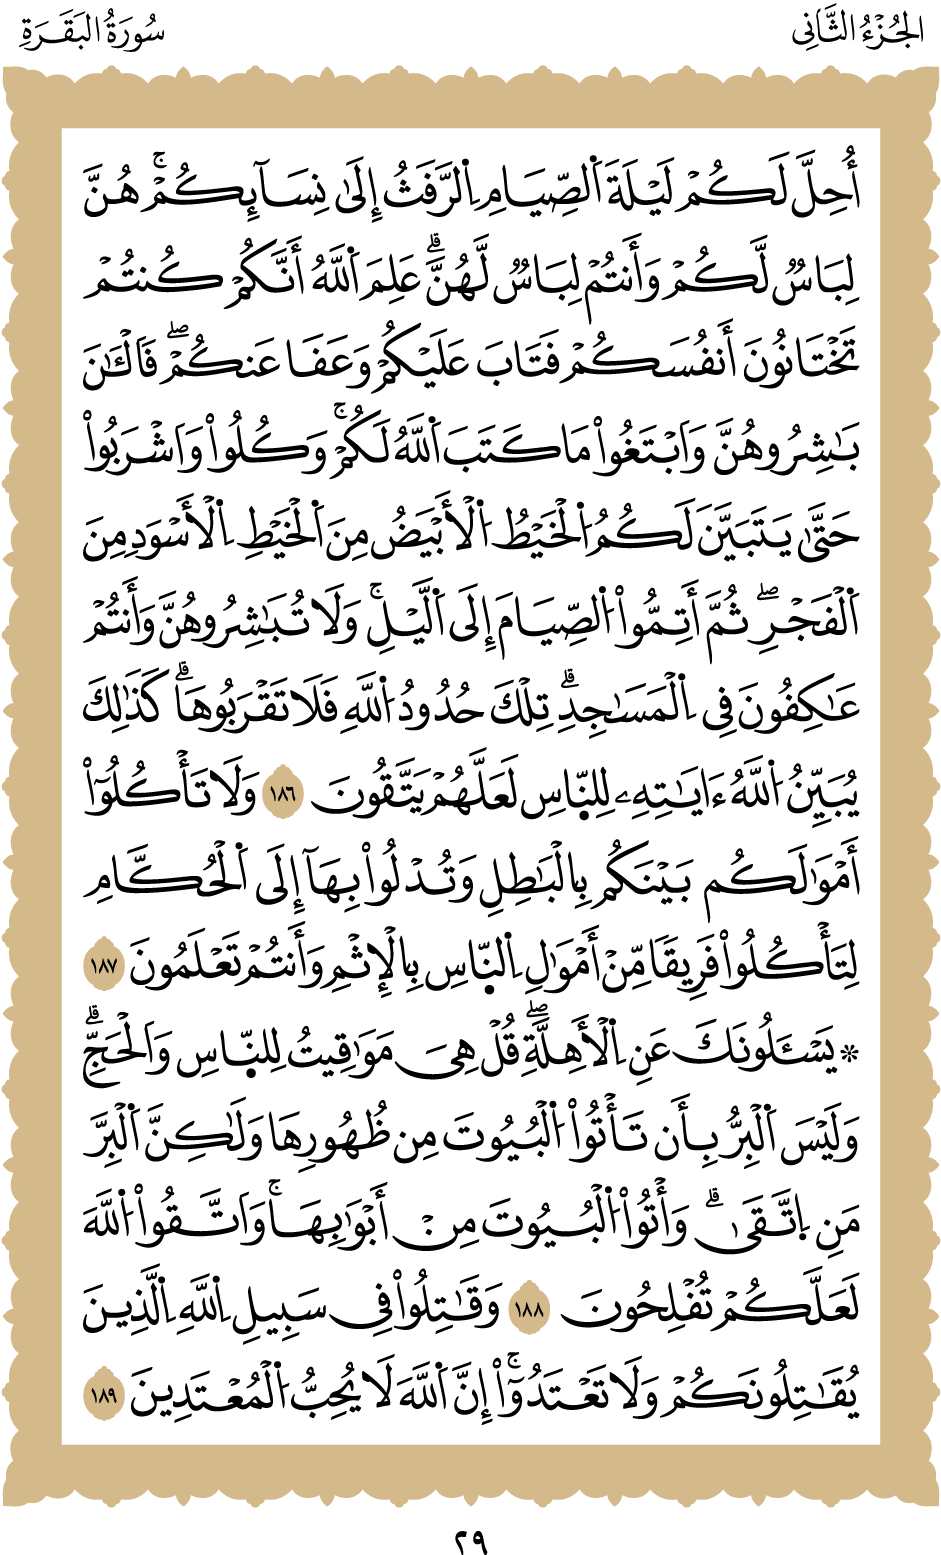 الجُزْءُ الثَّانِي
سُورَةُ البَقَرَةِ
أُحِلَّ لَكُمْ لَيْلَةَ اَ۬لصِّيَامِ اِ۬لرَّفَثُ إِلَىٰ نِسَآئِكُمْۚ هُنَّ
لِبَاسٞ لَّكُمْ وَأَنتُمْ لِبَاسٞ لَّهُنَّۗ عَلِمَ اَ۬للَّهُ أَنَّكُمْ كُنتُمْ
تَخْتَانُونَ أَنفُسَكُمْ فَتَابَ عَلَيْكُمْ وَعَفَا عَنكُمْۖ فَالْـَٰٔنَ
بَٰشِرُوهُنَّ وَابْتَغُواْ مَا كَتَبَ اَ۬للَّهُ لَكُمْۚ وَكُلُواْ وَاشْرَبُواْ
حَتَّىٰ يَتَبَيَّنَ لَكُمُ اُ۬لْخَيْطُ اُ۬لْأَبْيَضُ مِنَ اَ۬لْخَيْطِ اِ۬لْأَسْوَدِ مِنَ
اَ۬لْفَجْرِۖ ثُمَّ أَتِمُّواْ اُ۬لصِّيَامَ إِلَى اَ۬لَّيْلِۚ وَلَا تُبَٰشِرُوهُنَّ وَأَنتُمْ
عَٰكِفُونَ فِي اِ۬لْمَسَٰجِدِۗ تِلْكَ حُدُودُ اُ۬للَّهِ فَلَا تَقْرَبُوهَاۗ كَذَٰلِكَ
يُبَيِّنُ اُ۬للَّهُ ءَايَٰتِهِۦ لِلنَّاسِ لَعَلَّهُمْ يَتَّقُونَ ١٨٦ وَلَا تَأْكُلُوٓاْ
أَمْوَٰلَكُم بَيْنَكُم بِالْبَٰطِلِ وَتُدْلُواْ بِهَآ إِلَى اَ۬لْحُكَّامِ
لِتَأْكُلُواْ فَرِيقٗا مِّنْ أَمْوَٰلِ اِ۬لنَّاسِ بِالْإِثْمِ وَأَنتُمْ تَعْلَمُونَ ١٨٧
* يَسْـَٔلُونَكَ عَنِ اِ۬لْأَهِلَّةِۖ قُلْ هِيَ مَوَٰقِيتُ لِلنَّاسِ وَالْحَجِّۗ
وَلَيْسَ اَ۬لْبِرُّ بِأَن تَأْتُواْ اُ۬لْبُيُوتَ مِن ظُهُورِهَا وَلَٰكِنَّ اَ۬لْبِرَّ
مَنِ اِ۪تَّقَىٰۗ وَأْتُواْ اُ۬لْبُيُوتَ مِنْ أَبْوَٰبِهَاۚ وَاتَّقُواْ اُ۬للَّهَ
لَعَلَّكُمْ تُفْلِحُونَ ١٨٨ وَقَٰتِلُواْ فِي سَبِيلِ اِ۬للَّهِ اِ۬لَّذِينَ
يُقَٰتِلُونَكُمْ وَلَا تَعْتَدُوٓاْۚ إِنَّ اَ۬للَّهَ لَا يُحِبُّ اُ۬لْمُعْتَدِينَ ١٨٩
٢٩